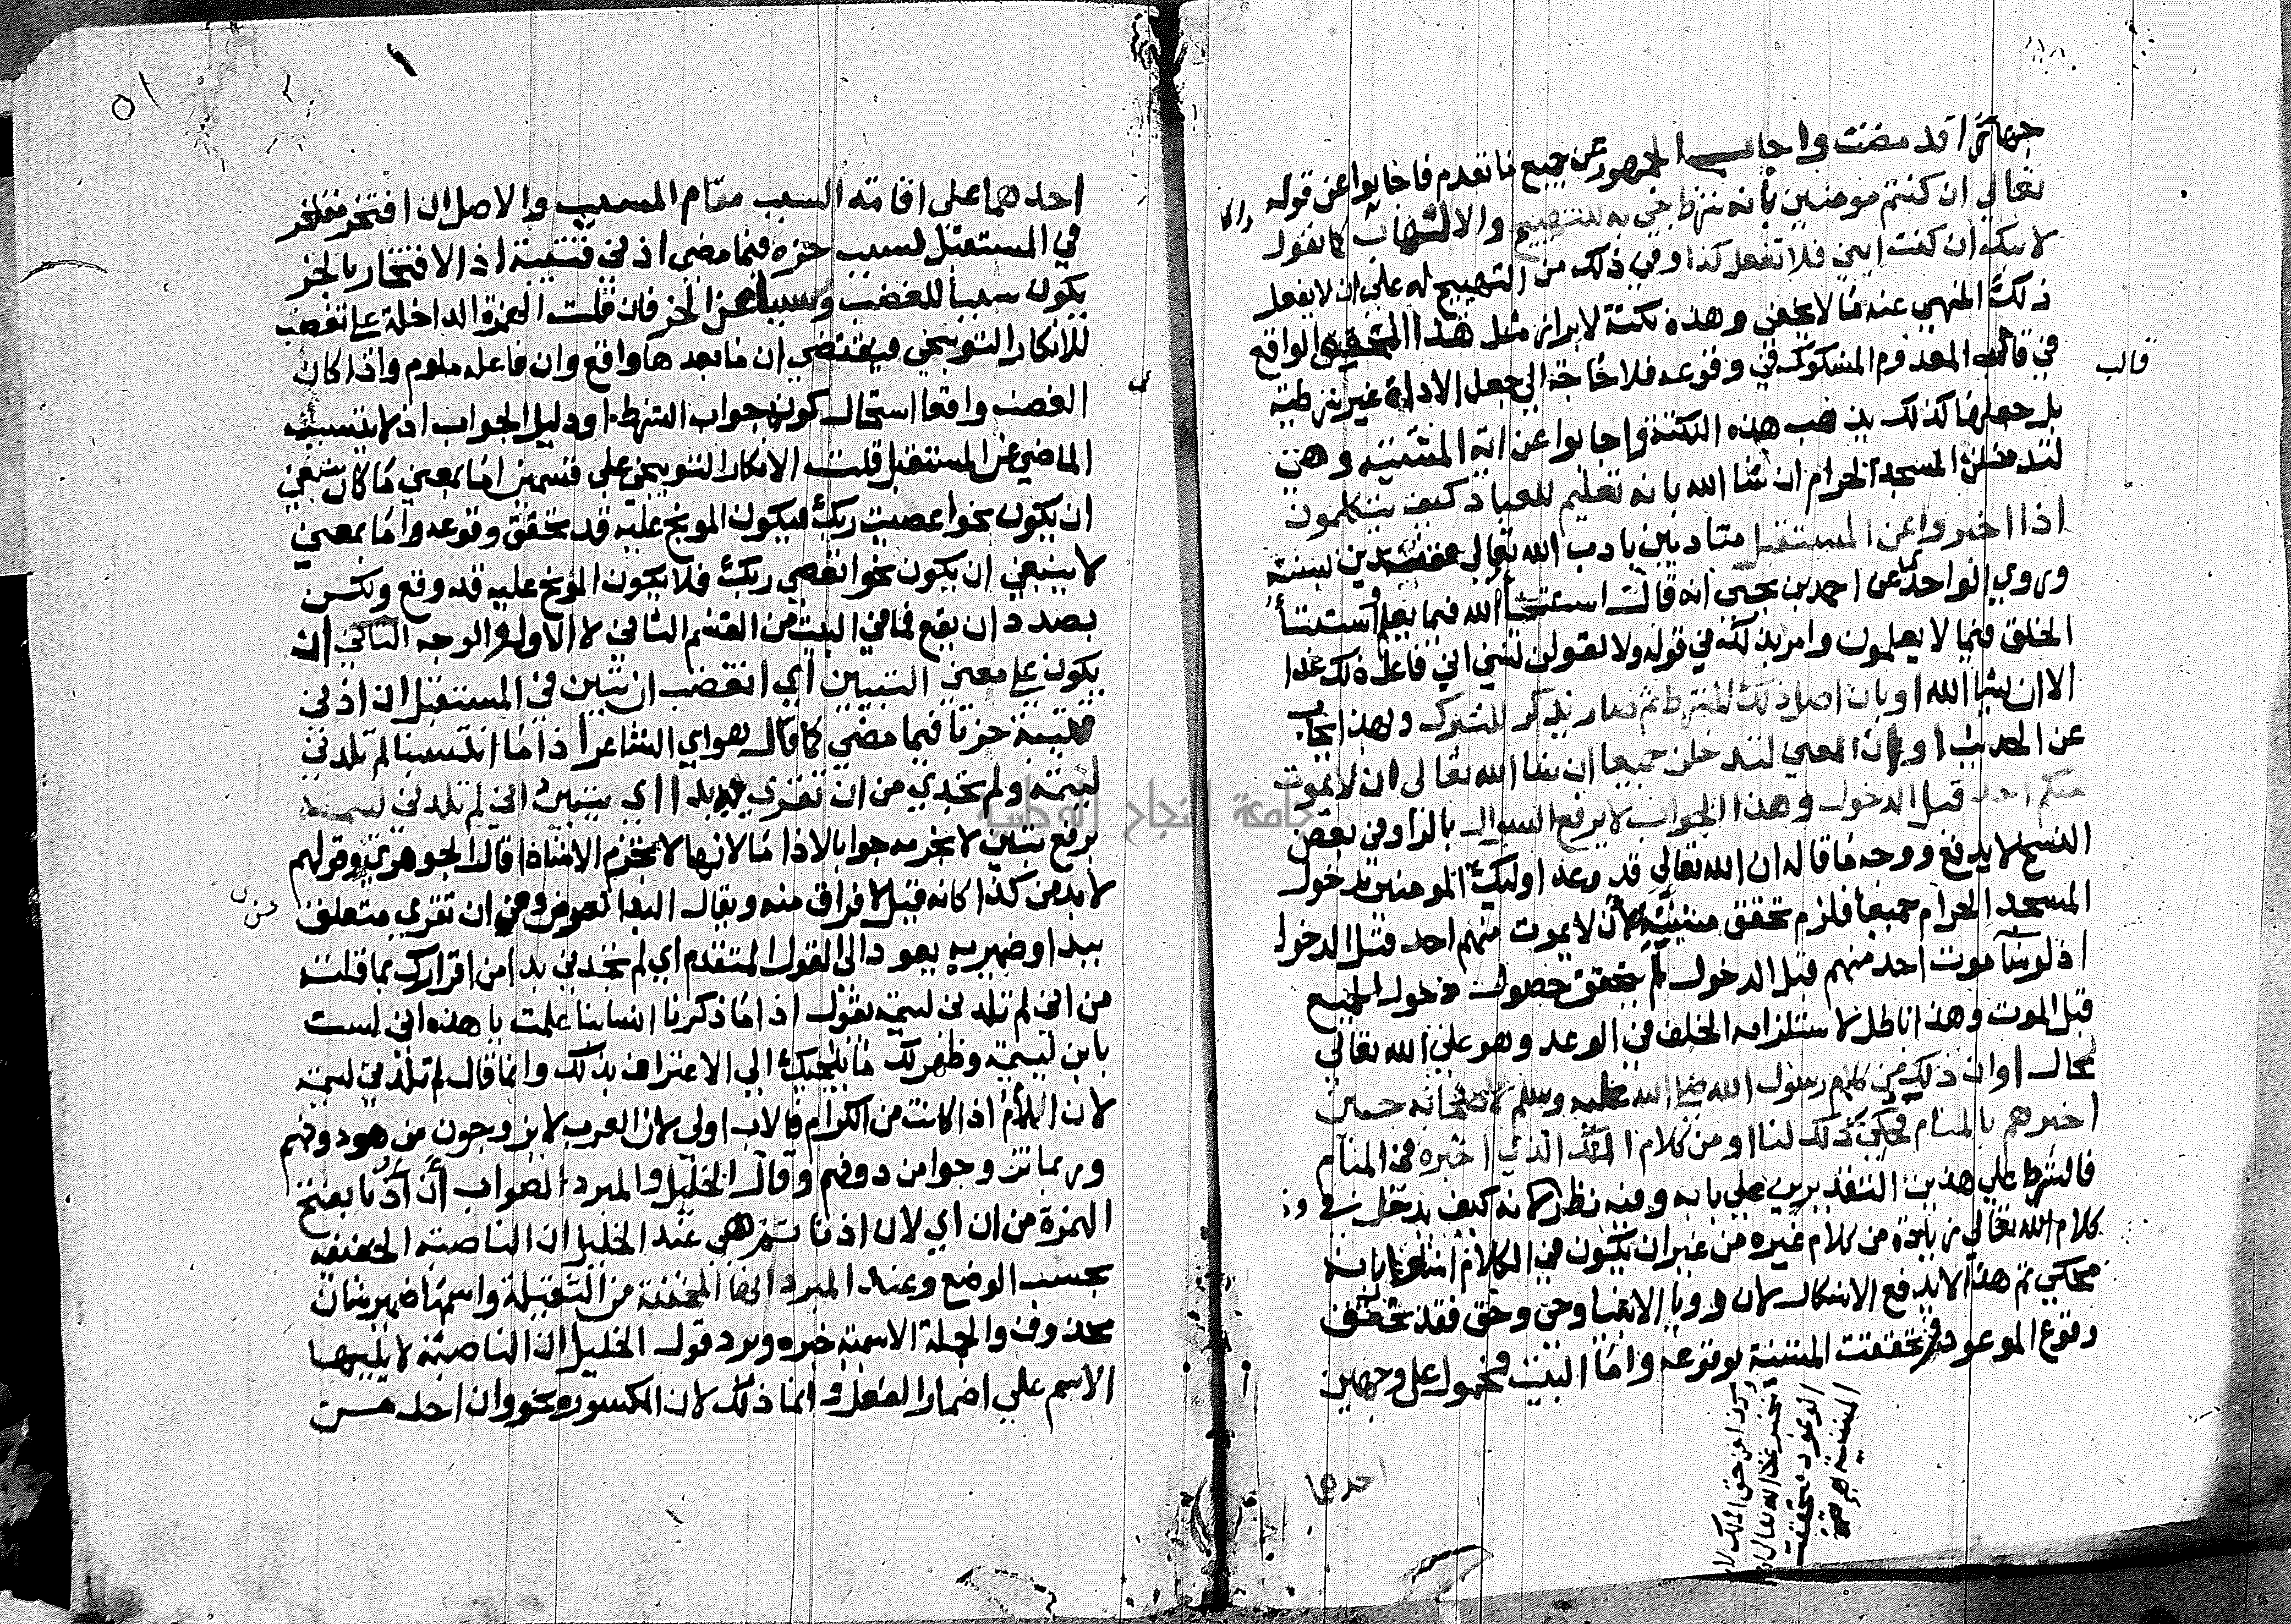 جهارا قد مضت واجاب الجمهور عن جميع ما تقدم فاجابوا عن قوله
تعالى ان كنتم مومنين بانه شرط جي به للتهييج والالتهاب كما تقول
لابنك ان كنت ابني فلا تفعل كذا وفي ذلك من التهييج له على ان لا يفعل
ذلك المنهي عنه ما لا يخفى وهذه نكتة لابراز مثل هذا المتحقق الواقع
في قالب المعدوم المشكوك في وقوعه فلا حاجة الى جعل الاداة غير شرطية
بل جعلها كذلك يذهب هذه النكتة واجابوا عن اية المشيئة وهي
لتدخلن المسجد الحرام ان شا الله بانه تعليم للعباد كيف يتكلمون
اذا اخبروا عن المستقبل متادبين بادب الله تعالى مقتدين بسنته
وروي الواحدي عن احمد بن يحيى انه قال استثنى الله فيما يعلم ليستثنا
الخلق فيما لا يعلمون وامر بذلك في قوله ولا تقولن لشي اني فاعل ذلك غدا
الا ان يشا الله او بان اصل ذلك الشرط ثم صار يذكر للتبرك وبهذا يجاب
عن الحديث او بان المعنى لتدخلن جميعا ان شا الله تعالى ان لا يموت
منكم احد قبل الدخول وهذا الجواب لا يرفع السوال بالرا وفي بعض
النسخ لا يدفع ووجه ما قاله ان الله تعالى قد وعد اوليك المومنين بدخول
المسجد الحرام جميعا فلزم تحقق مشيئة ان لا يموت منهم احد قبل الدخول
اذ لو شا موت احد منهم قبل الدخول لم يتحقق حصول دخول الجميع
قبل الموت وهذا باطل لاستلزامه الخلف في الوعد وهو على الله تعالى
محال او ان ذلك من كلام رسول الله صلى الله عليه وسلم لاصحابه حين
اخبرهم بالمنام فحكى ذلك لنا او من كلام الملك الذي اخبره في المنام
فالشرط على هذين التقديرين على بابه وفيه نظر لانه كيف يدخل في
كلام الله تعالى زيادة من كلام غيره من غير ان يكون في الكلام اشعار بانه
محكي ثم هذا لا يدفع الاشكال لان رويا الانبيا وحي وحق فقد تحقق
وقوع الموعود وتحققت المشيئة بوقوعه واما البيت فمحمول على وجهين
قالب
احدهما
احدهما على اقامة السبب مقام المسبب والاصل ان افتخر مفتخر
في المستقبل بسبب حزه فيما مضى اذني قتيبة اذ الافتخار بالحز
يكون سببا للغضب وسببا عن الحز فان قلت الهمزة الداخلة على تغضب
للانكار التوبيخي فيقتضي ان ما بعدها واقع وان فاعله ملوم واذا كان
الغضب واقعا استحال كونه جواب الشرط او دليل الجواب اذ لا يتسبب
الماضي عن المستقبل قلت الانكار التوبيخي على قسمين اما بمعنى ما كان ينبغي
ان يكون نحو اعصيت ربك فيكون الموبخ عليه قد تحقق وقوعه واما بمعنى
لا ينبغي ان يكون نحو اتعصي ربك فلا يكون الموبخ عليه قد وقع ولكن
بصدد ان يقع فما في البيت من القسم الثاني لا الاول والوجه الثاني ان
يكون على معنى التبيين اي اتغضب ان تبين في المستقبل ان اذني
قتيبة حزتا فيما مضى كما قال بهواي الشاعر اذا ما انتسبنا لم تلدني
لئيمة ولم تجدي من ان تقري به بدا اي يتبين اني لم تلدني لئيمة
برفع يتبين لا بجزمه جوابا لاذا ما لانها لا تجزم الا شاذا قال الجوهري وقولهم
لا بد من كذا كانه قيل لا فراق منه ويقال البد العوض وفي ان تقري متعلق
ببدا وضمير به يعود الى القول المتقدم اي لم تجدي بدا من اقرارك بما قلت
من اني لم تلدني لئيمة يقول اذا ما ذكرنا انسابنا علمت يا هذه اني لست
بابن لئيمة وظهر لك ما يلجيك الى الاعتراف بذلك وانما قال لم تلدني لئيمة
لان الام اذا كانت من الكرام فالاب اولى لان العرب لا يزوجون من هو دونهم
وربما تزوجوا من دونهم وقال الخليل والمبرد الصواب أن اذنا بفتح
الهمزة من ان اي لان اذنا ثم هي عند الخليل ان الناصبة الخفيفة
بحسب الوضع وعند المبرد انها المخففة من الثقيلة واسمها ضمير شان
محذوف والجملة الاسمية خبره ويرد قول الخليل ان الناصبة لا يليها
الاسم على اضمار الفعل وانما ذلك لان المكسورة نحو وان احد من